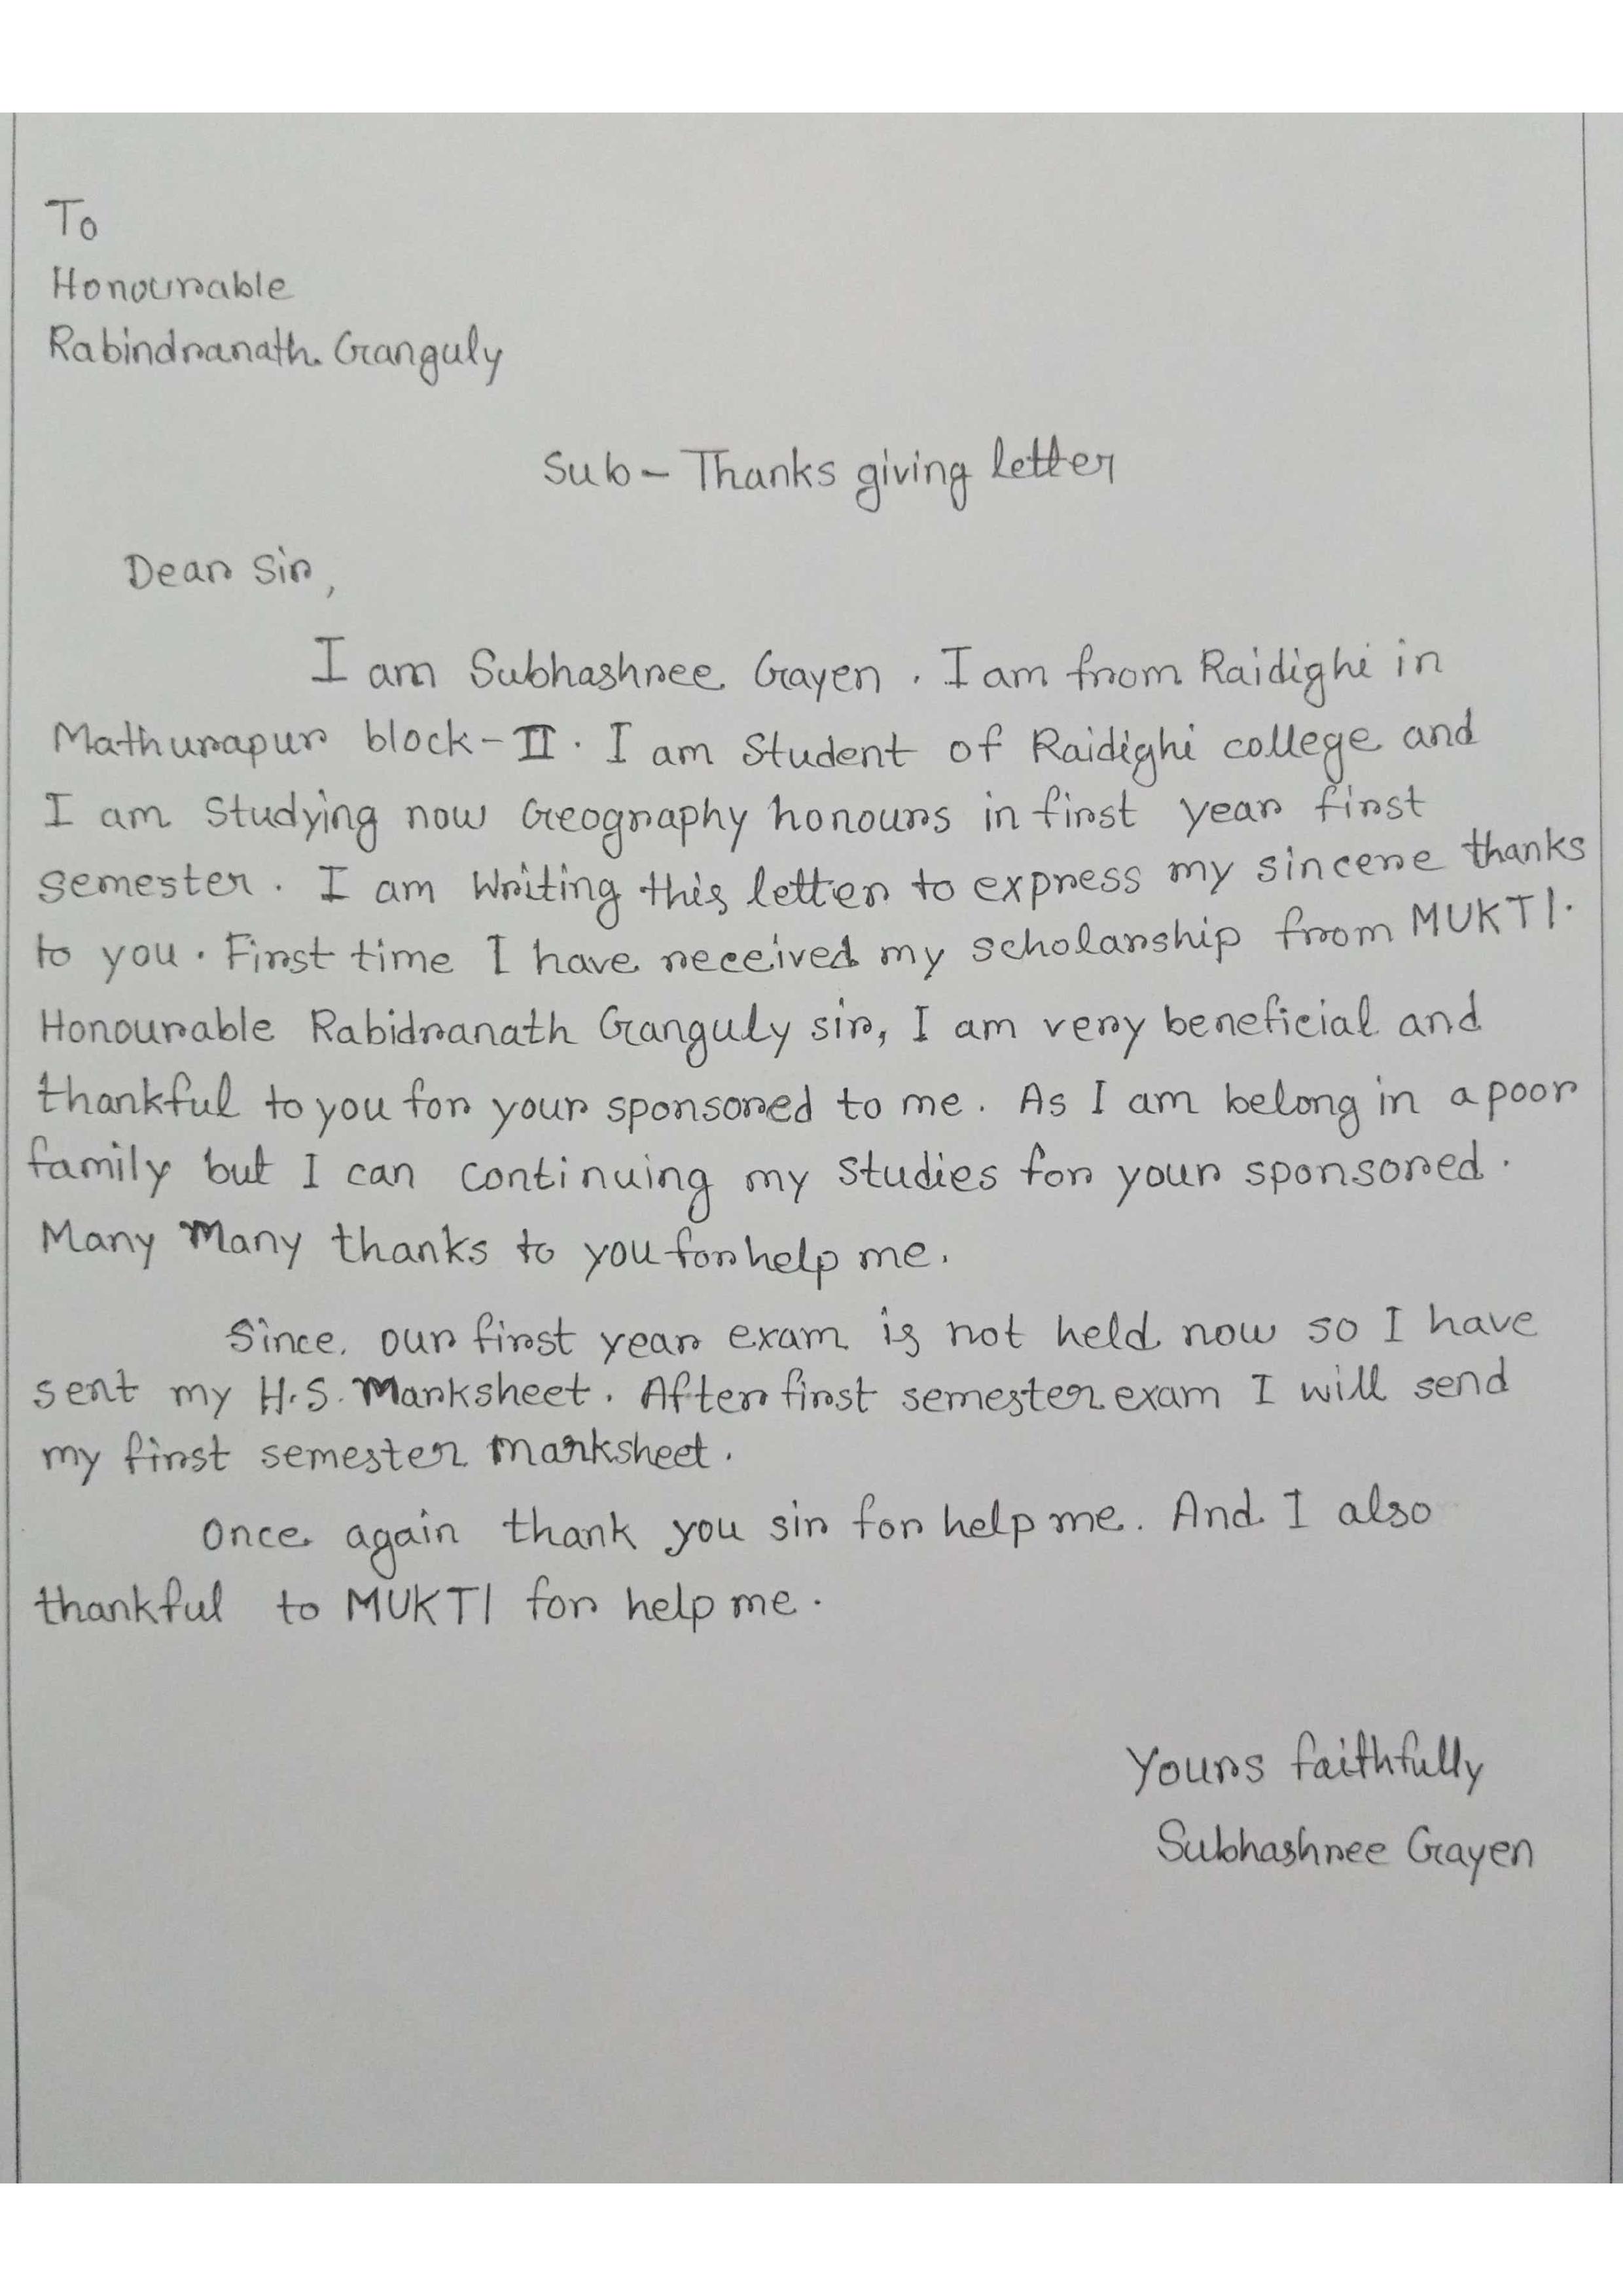 To
Honourable
Rabindranath Ganguly
Sub - Thanks giving letter
Dear Sir,
I am Subhashree Gayen. I am from Raidighi in
Mathurapur block - II. I am Student of Raidighi college and
I am Studying now Geography honours in first year first
semester. I am Writing this letter to express my sincere thanks
to you. First time I have received my scholarship from MUKTI.
Honourable Rabidranath Ganguly sir, I am very beneficial and
thankful to you for your sponsored to me. As I am belong in a poor
family but I can continuing my studies for your sponsored.
Many Many thanks to you for help me.
Since, our first year exam is not held now so I have
sent my H.S. Marksheet. After first semester exam I will send
my first semester marksheet.
Once again thank you sir for help me. And I also
thankful to MUKTI for help me.
Yours faithfully
Subhashree Gayen